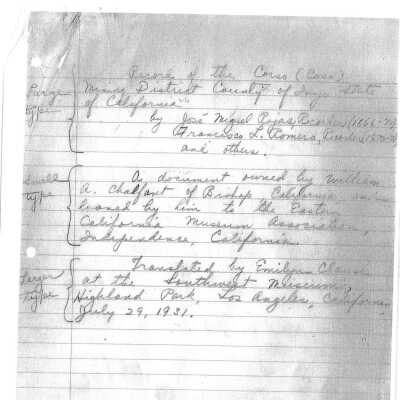 Record of the Corso (Coso)
Large type
Mining District County of Inyo State
of California
by José Miguel Rojas, Recorder (1866-
Francisco L. Romero, Recorder
and others.
Small type
A document owned by William
A. Chalfant of Bishop California
loaned by him to the Eastern
California Museum Association
Independence, California
Larger type
Translated by
at the Southwest Museum,
Highland Park, Los Angeles, California
July 29, 1931.